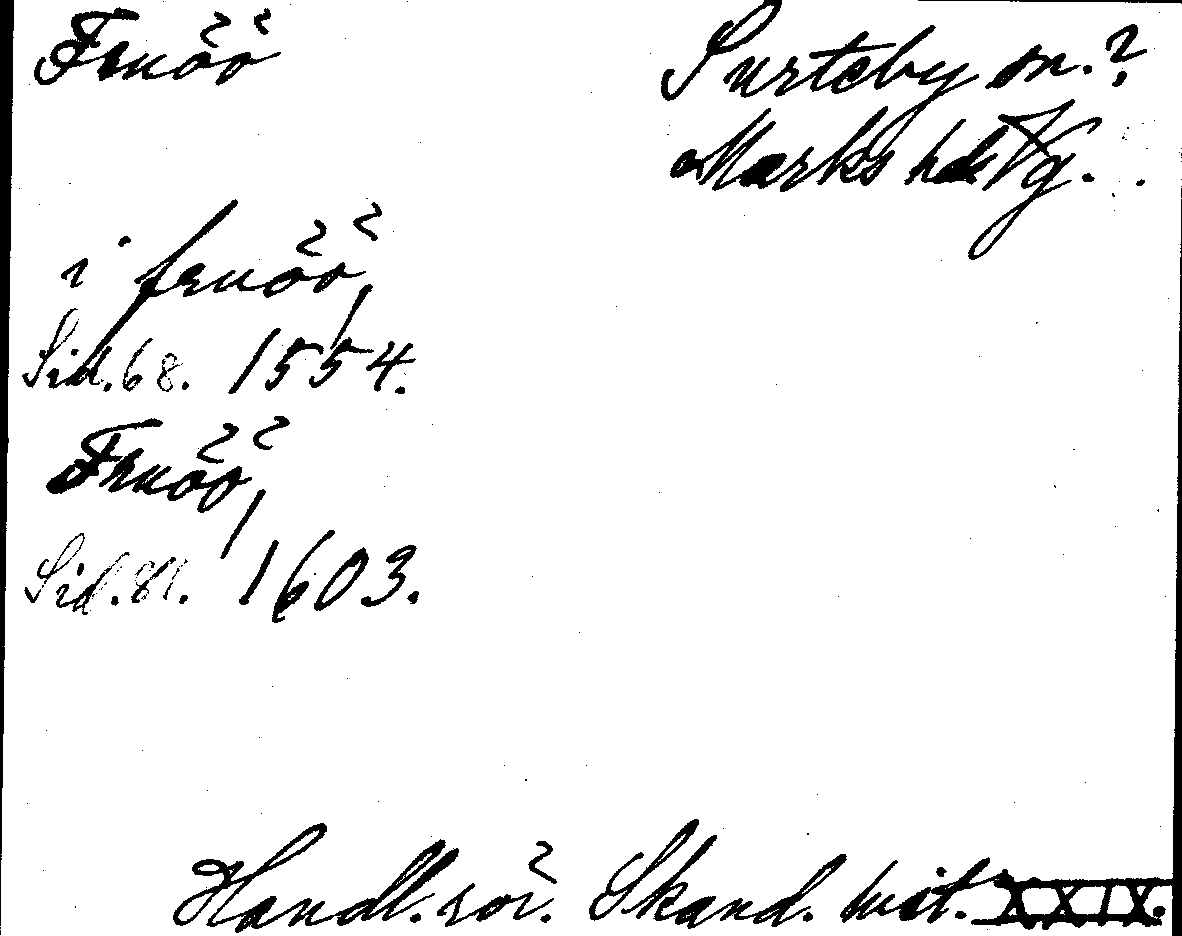 Fruöö
Surteby sn.?
Marks hd Vg.
i fruöö,
Sid. 68. 1554.
Fruöö,
Sid. 81. 1603.
Handl. rör. Skand. hist. XXIX.